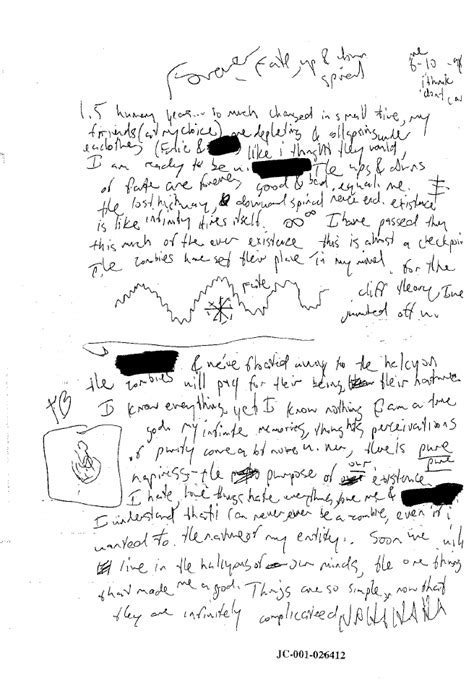 Forever Fate, up & down
spiral
me
8-10
i think
1.5 human years... so much changed in small time, my
friends (at my choice) are depleting & collapsing under
eachother (Eric & like i thought they would
I am ready to be w. The ups & downs
of fate are forever, good & bad equal me.
the lost highway & downward spiral never end. existence
is like infinity itself. ∞ I have passed thru
this much of the ever existence this is almost a checkpoint
The zombies have set their place in my novel. for the
fate
cliff theory, Ive
jumped off w.
& we've floated away to the halcyon
the zombies will pay for their being, their
I know everything, yet I know nothing I am a true
god. my infinite memories, thoughts, perceivations
of purity come a bit more w. her, there is pure
pure
happiness - the purpose of our existence
I hate, love things hate everything, love me &
I understand that i can never ever be a zombie, even if i
wanted to. the nature of my entity. Soon we will
live in the halcyons of our minds, the one thing
that made me a god. Things are so simple, now that
they are infinitely complicated HAHAHAHA
JC-001-026412